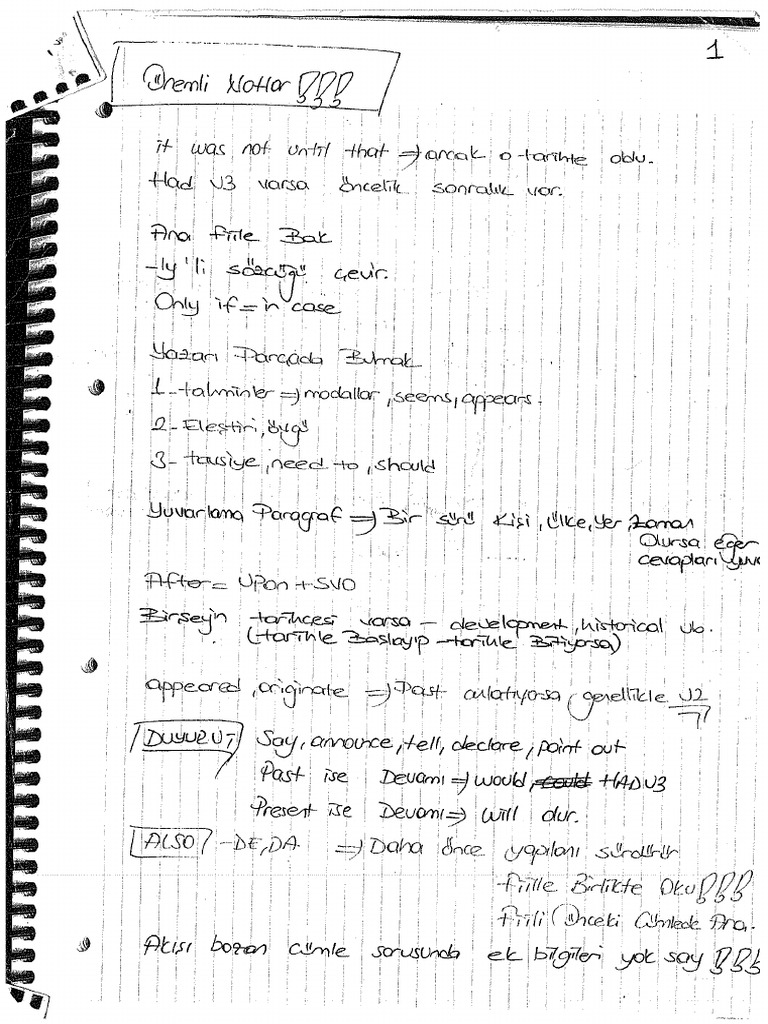 1
Önemli Notlar !!!
it was not until that => ancak o tarihte oldu.
Had V3 varsa öncelik sonralık var.
Ana fiile Bak
-ly'li sözcüğü çevir.
Only if = in case
Yazarı Parçada Bulmak
1- tahminler => modallar, seems, appears.
2- Eleştiri, övgü
3- tavsiye, need to, should
Yuvarlama Paragraf => Bir sürü Kişi, ülke, yer, zaman
Olursa eğer
cevapları yuva
After = Upon + SVO
Birşeyin tarihçesi varsa - development, historical vb.
(tarihle Başlayıp - tarihle Bitiyorsa)
appeared, originate => Past anlatıyorsa genellikle V2
DUYURUT Say, announce, tell, declare, point out
Past ise Devamı => would, could + HAD V3
Present ise Devamı => will dur.
ALSO -DE, DA => Daha önce yapılanı sürdürür
fiille Birlikte Oku !!!
Fiili Önceki Cümlede Ara.
Akışı bozan cümle sorusunda ek bilgileri yok say !!!